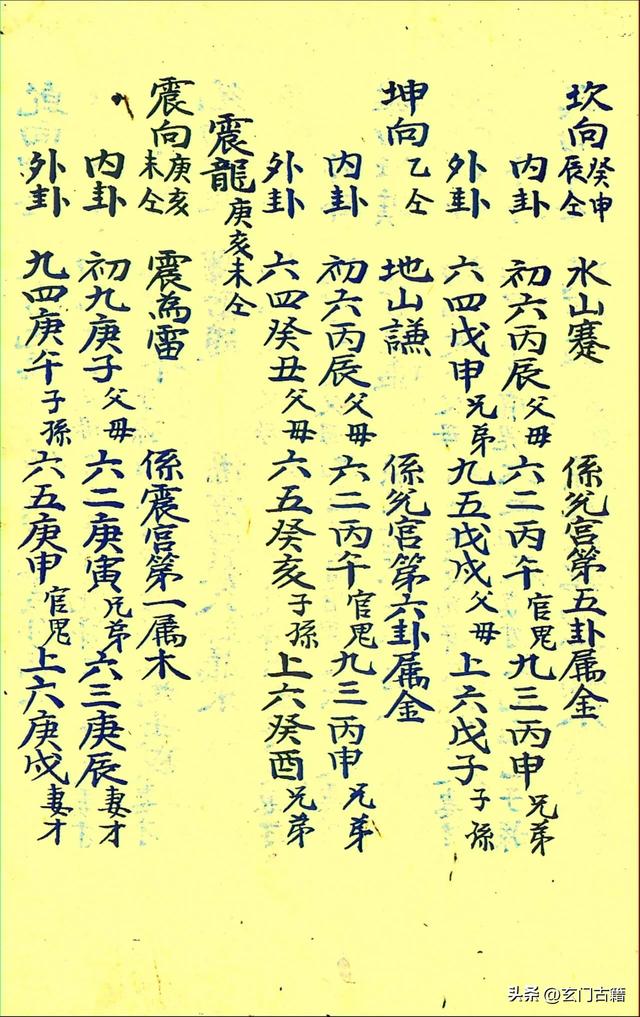 坎向癸申辰仝 水山蹇 係兌宮第五卦属金
内卦 初六丙辰父毋 六二丙午官鬼 九三丙申兄弟
外卦 六四戊申兄弟 九五戊戌父毋 上六戊子子孫
坤向乙仝 地山謙 係兌宮第六卦属金
内卦 初六丙辰父毋 六二丙午官鬼 九三丙申兄弟
外卦 六四癸丑父毋 六五癸亥子孫 上六癸酉兄弟
震龍庚亥未仝
震向庚亥未仝 震為雷 係震宮第一属木
内卦 初九庚子父毋 六二庚寅兄弟 六三庚辰妻才
外卦 九四庚午子孫 六五庚申官鬼 上六庚戌妻才
头条 @玄门古籍